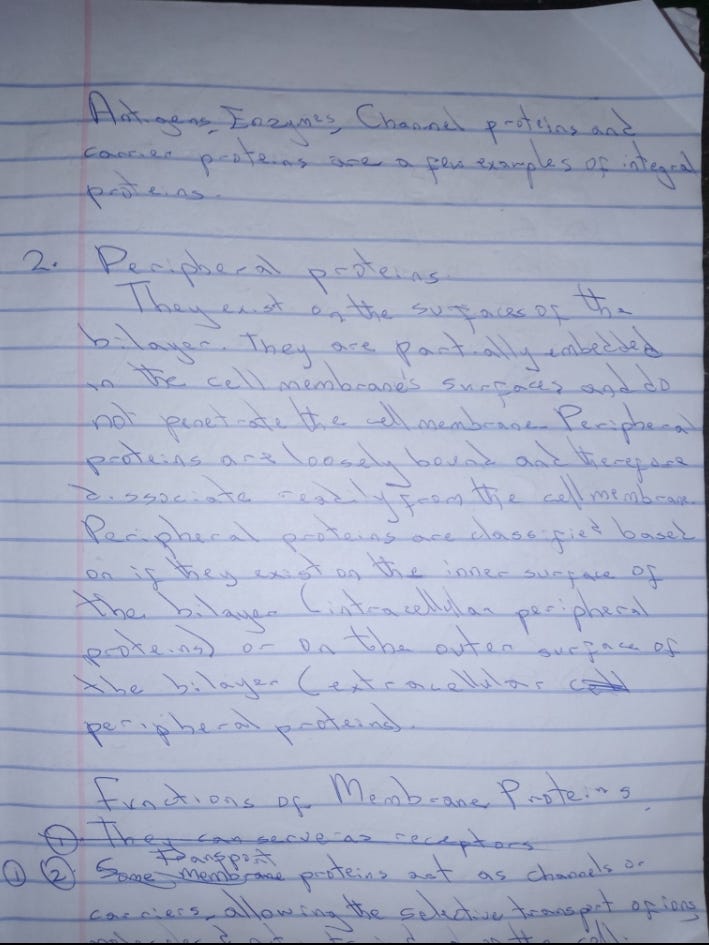 Antigens, Enzymes, Channel proteins and
carrier proteins are a few examples of integral
proteins.
2. Peripheral proteins
They exist on the surfaces of the
bilayer. They are partially embedded
in the cell membrane's surfaces and do
not penetrate the cell membrane. Peripheral
proteins are loosely bound and therefore
dissociate readily from the cell membrane.
Peripheral proteins are classified based
on if they exist on the inner surface of
the bilayer (intracellular peripheral
proteins) or on the outer surface of
the bilayer (extracellular cell
peripheral proteins).
Functions of Membrane Proteins
1. They can serve as receptors
Transport
1 2 Some membrane proteins act as channels or
carriers, allowing the selective transport of ions